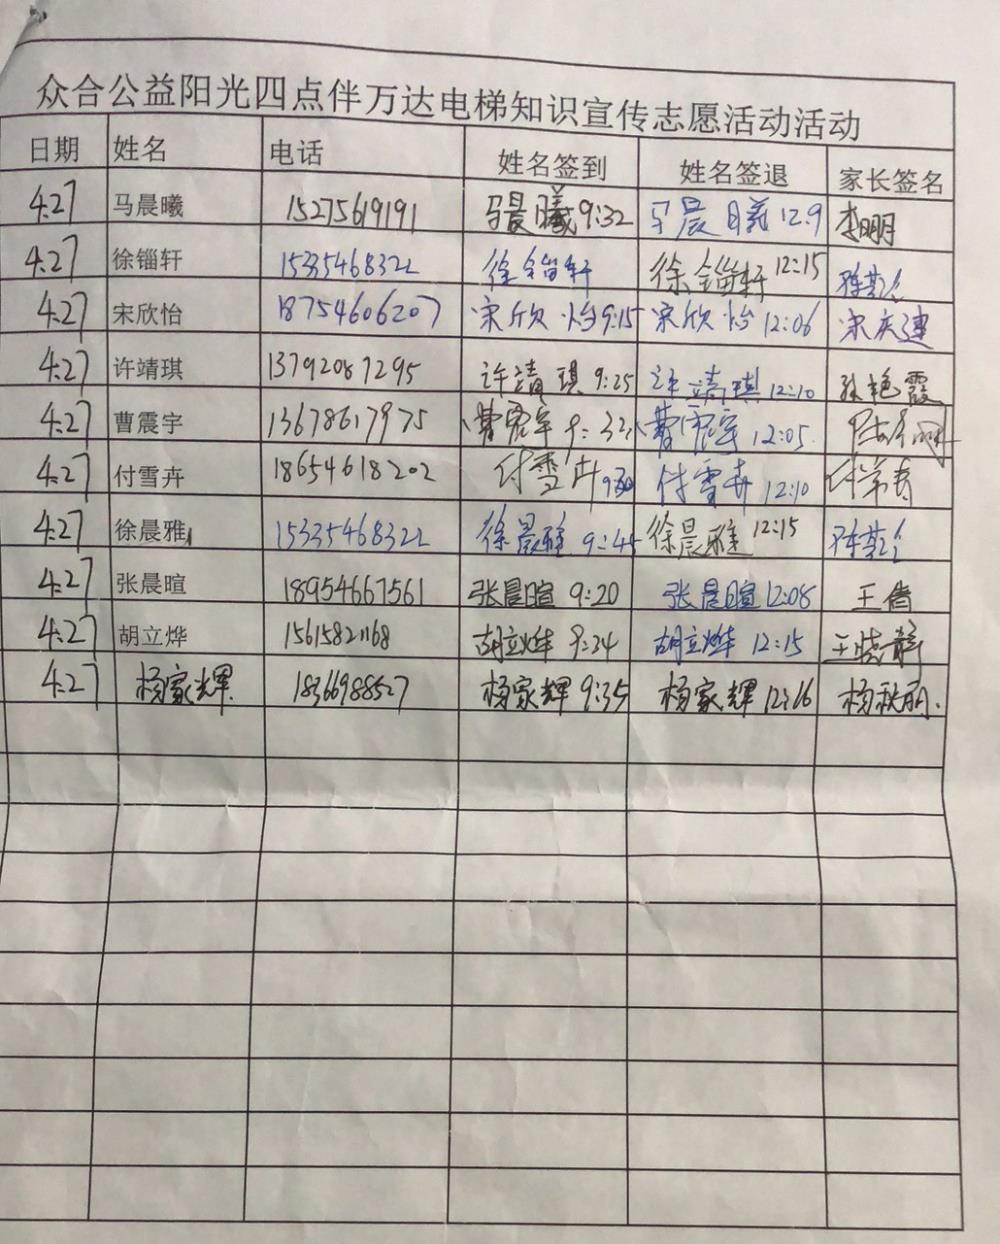 众合公益阳光四点伴万达电梯知识宣传志愿活动活动
日期 姓名 电话 姓名签到 姓名签退 家长签名
4.27 马晨曦 15275619191 马晨曦 9:32 马晨曦 12.9 李明明
4.27 徐锱轩 15335468322 徐锱轩 徐锱轩 12:15
4.27 宋欣怡 18754606207 宋欣怡 9:15 宋欣怡 12:06 宋庆建
4.27 许靖琪 13792087295 许靖琪 9:25 许靖琪 12:10 孙艳霞
4.27 曹震宇 13678617975 曹震宇 9:32 曹震宇 12:05.
4.27 付雪卉 18654618202 付雪卉 9:30 付雪卉 12:10
4.27 徐晨雅 15335468322 徐晨雅 9:45 徐晨雅 12:15
4.27 张晨暄 18954667561 张晨暄 9:20 张晨暄 12:08 王倩
4.27 胡立烨 15615821168 胡立烨 9:34 胡立烨 12:15 王晓静
4.27 杨家辉 18366988527 杨家辉 9:35 杨家辉 12:16 杨秋丽.